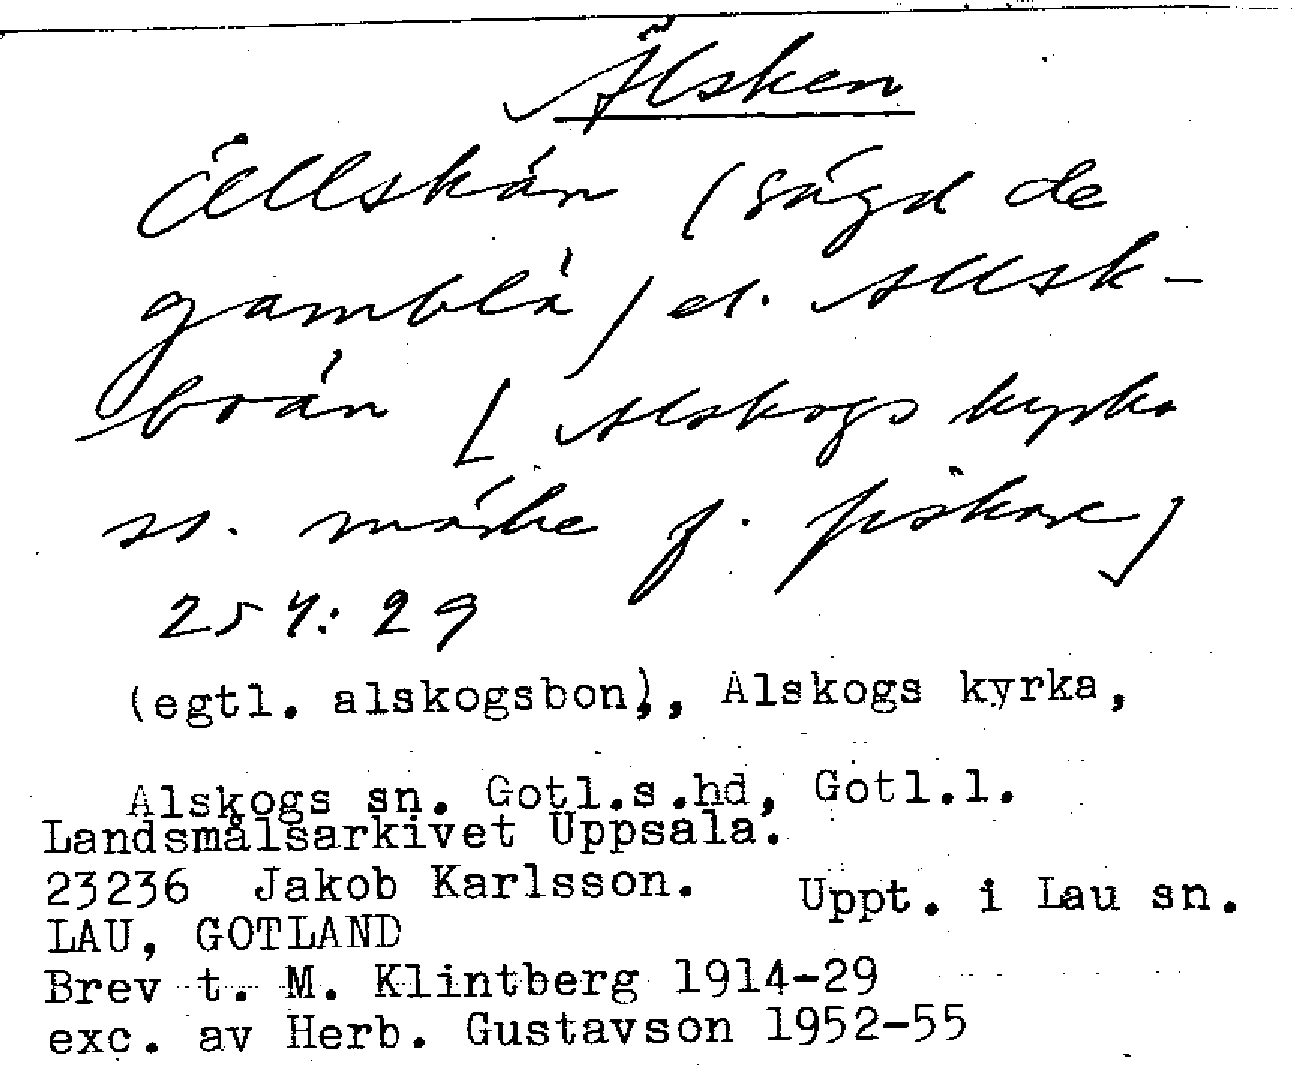 Älsken
Ällskán (ságd de
gamblá) el. Allsk-
boán [Alskogs kyrka
ss. märke f. fiskare]
254:29
(egtl. alskogsbon), Alskogs kyrka,
Alskogs sn. Gotl.s.hd, Gotl.l.
Landsmålsarkivet Uppsala.
23236 Jakob Karlsson. Uppt. i Lau sn.
LAU, GOTLAND
Brev t. M. Klintberg 1914-29
exc. av Herb. Gustavson 1952-55